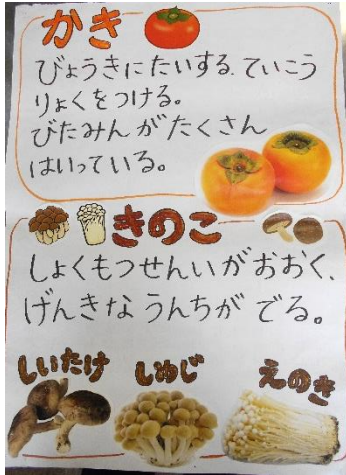 かき
びょうきにたいする、ていこう
りょくをつける。
びたみんがたくさん
はいっている。
きのこ
しょくもつせんいがおおく、
げんきなうんちがでる。
しいたけ
しめじ
えのき